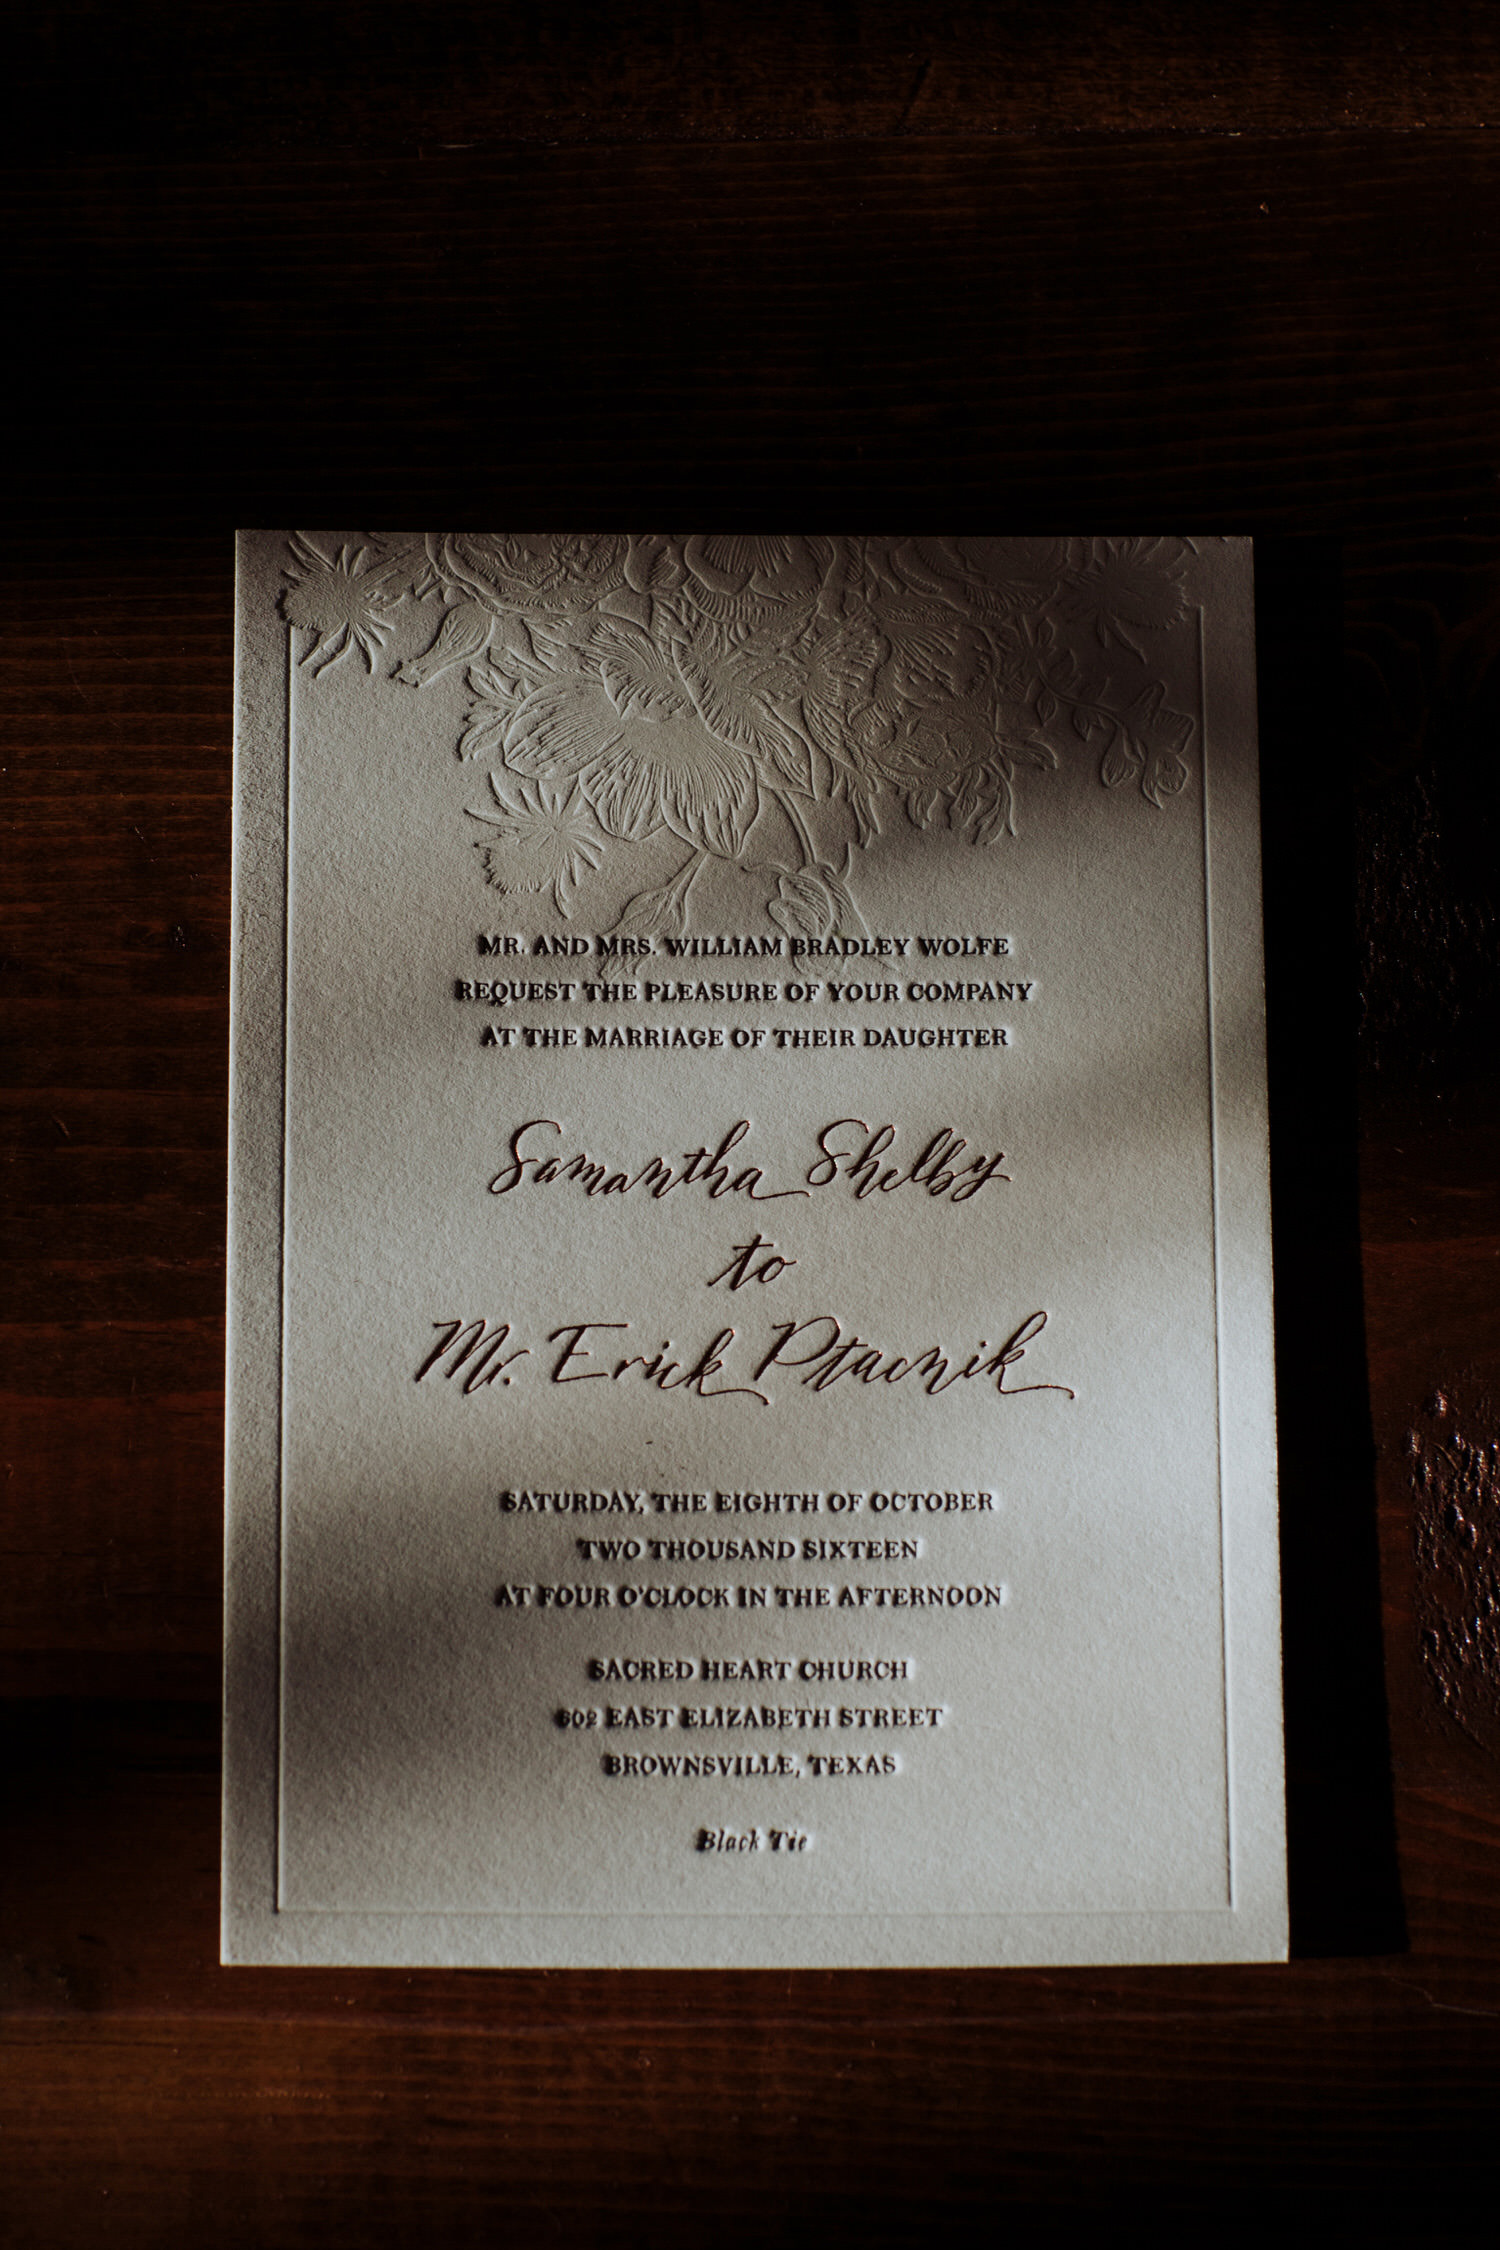 MR. AND MRS. WILLIAM BRADLEY WOLFE
REQUEST THE PLEASURE OF YOUR COMPANY
AT THE MARRIAGE OF THEIR DAUGHTER
Samantha Shelby
to
Mr. Erick Ptacnik
SATURDAY, THE EIGHTH OF OCTOBER
TWO THOUSAND SIXTEEN
AT FOUR O'CLOCK IN THE AFTERNOON
SACRED HEART CHURCH
602 EAST ELIZABETH STREET
BROWNSVILLE, TEXAS
Black Tie